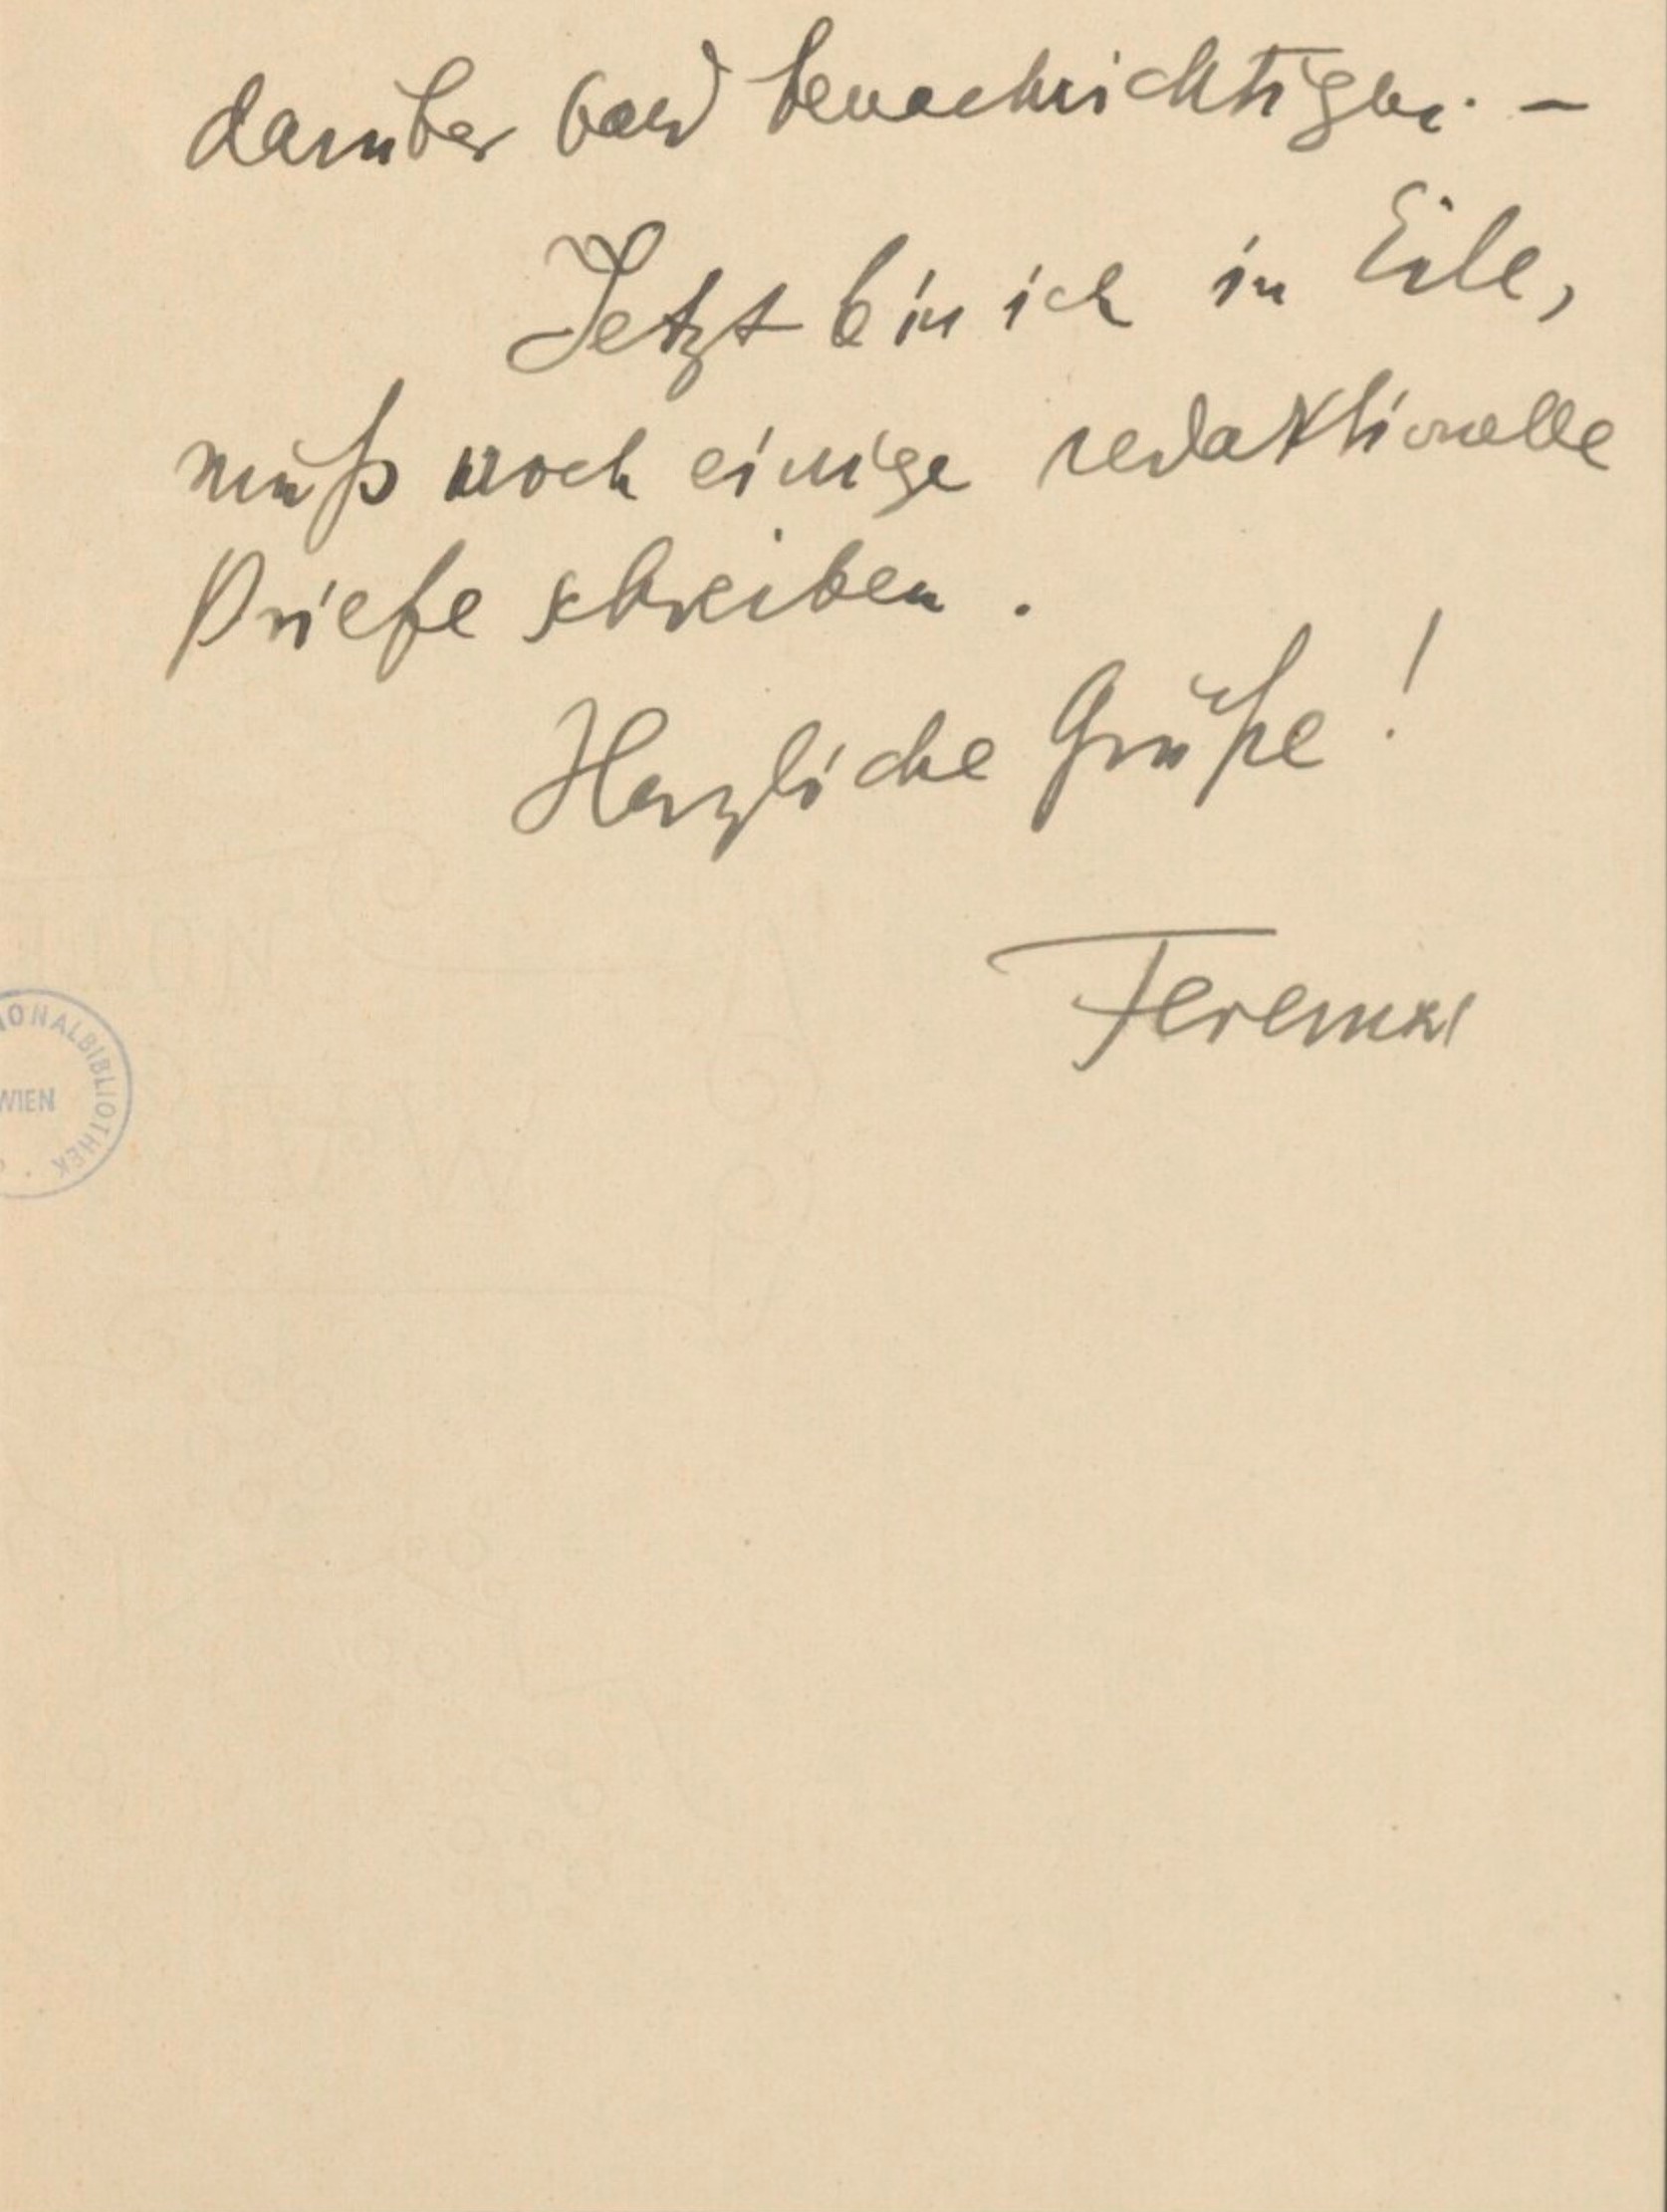 darüber bald benachrichtigen. –
Jetzt bin ich in Eile,
muß noch einige redaktionelle
Briefe schreiben.
Herzliche Grüße!
Ferenczi
IONALBIBLIOTHEK
WIEN